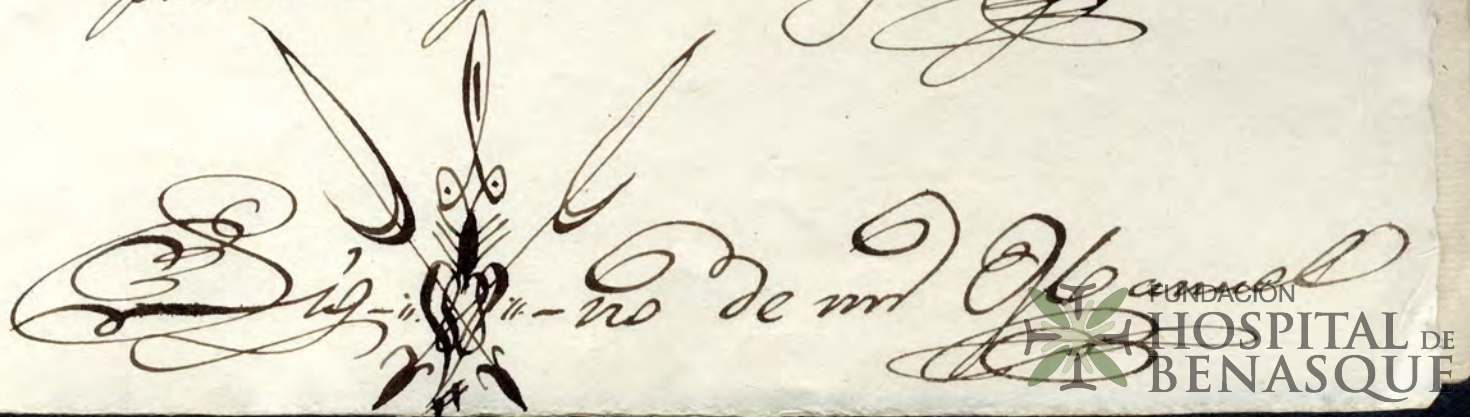 Sig-no de mi Manuel
FUNDACIÓN
HOSPITAL DE
BENASQUE